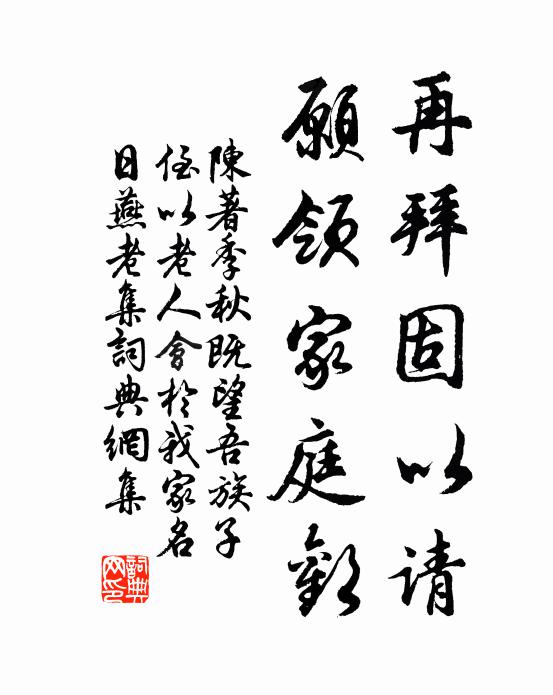 再拜固以请
願領家庭歡
陳著季秋既望吾族子
侄以老人會於我家名
日燕老集詞典網集
詞典网印